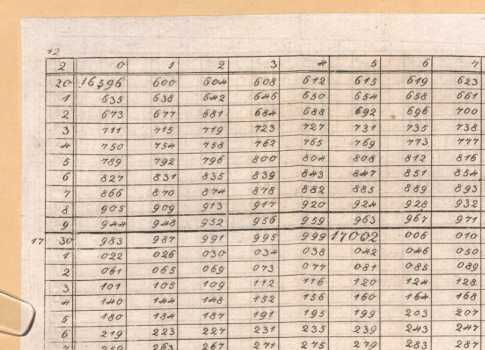 12
2 0 1 2 3 4 5 6 7
20 16596 600 604 608 612 615 619 623
1 635 638 642 646 650 654 658 661
2 673 677 681 684 688 692 696 700
3 711 715 719 723 727 731 735 738
4 750 754 758 762 765 769 773 777
5 789 792 796 800 804 808 812 816
6 827 831 835 839 843 847 851 854
7 866 870 874 878 882 885 889 893
8 905 909 913 917 920 924 928 932
9 944 948 952 956 959 963 967 971
17 30 983 987 991 995 999 17002 006 010
1 022 026 030 034 038 042 046 050
2 061 065 069 073 077 081 085 089
3 101 105 109 112 116 120 124 128
4 140 144 148 152 156 160 164 168
5 180 184 187 191 195 199 203 207
6 219 223 227 231 235 239 243 247
7 259 263 267 271 275 279 283 287